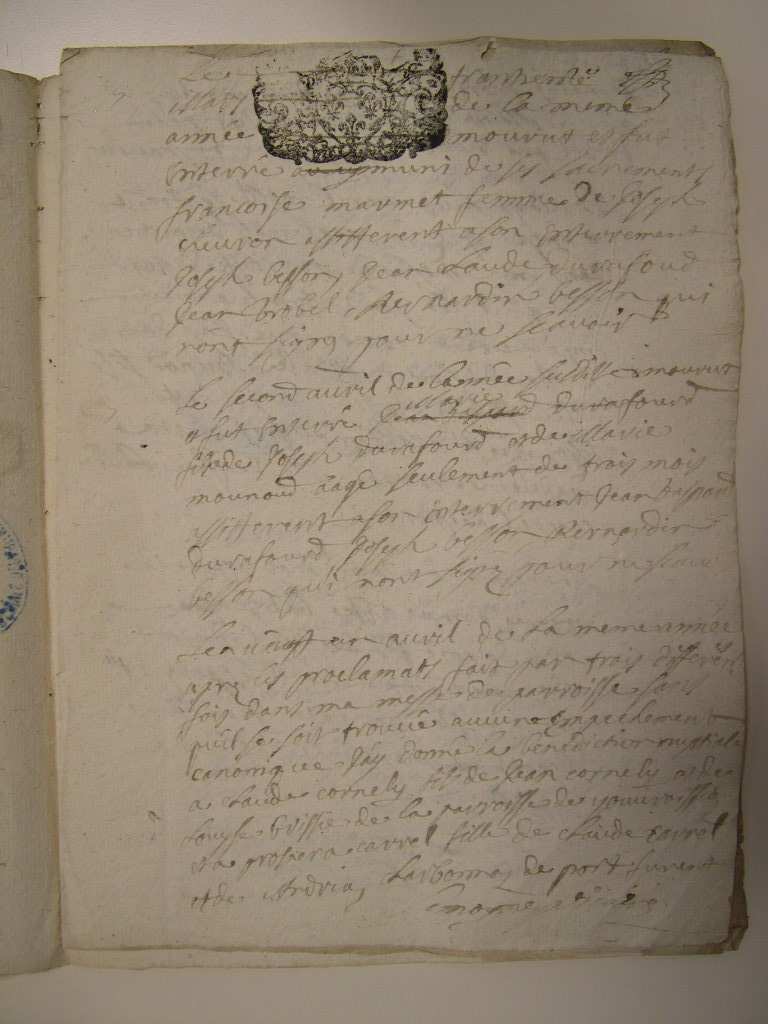 Le trantieme
mars de la meme
année mourut et fut
enterré muni de ses sacrements
francoise marmet femme de Joseph
cuvron assisterent a son enterrement
Joseph besson, Jean Claude durafourd
Jean brobel, Bernardin besson qui
nont signé pour ne scavoir
Le second avril de lannée susditte mourut
et fut enterré marie durafourd
fille de Joseph durafourd et de Marie
mounoud aage seulement de trois mois
assisterent a son enterrement Jean gaspard
durafourd Joseph besson Bernardin
besson qui nont signé pour ne scavoir
Le avril de la meme année
apres les proclamats fait par trois differents
fois dans ma messe de parroisse sans
quil se soit trouvé aucune empechement
canonique Jay donné la benediction nuptiale
a Claude cornely fils de Jean cornely et de
Louyse brissie de la parroisse de
et a prospera carrel fille de Claude carrel
et de Andria, Carbonnoz de port